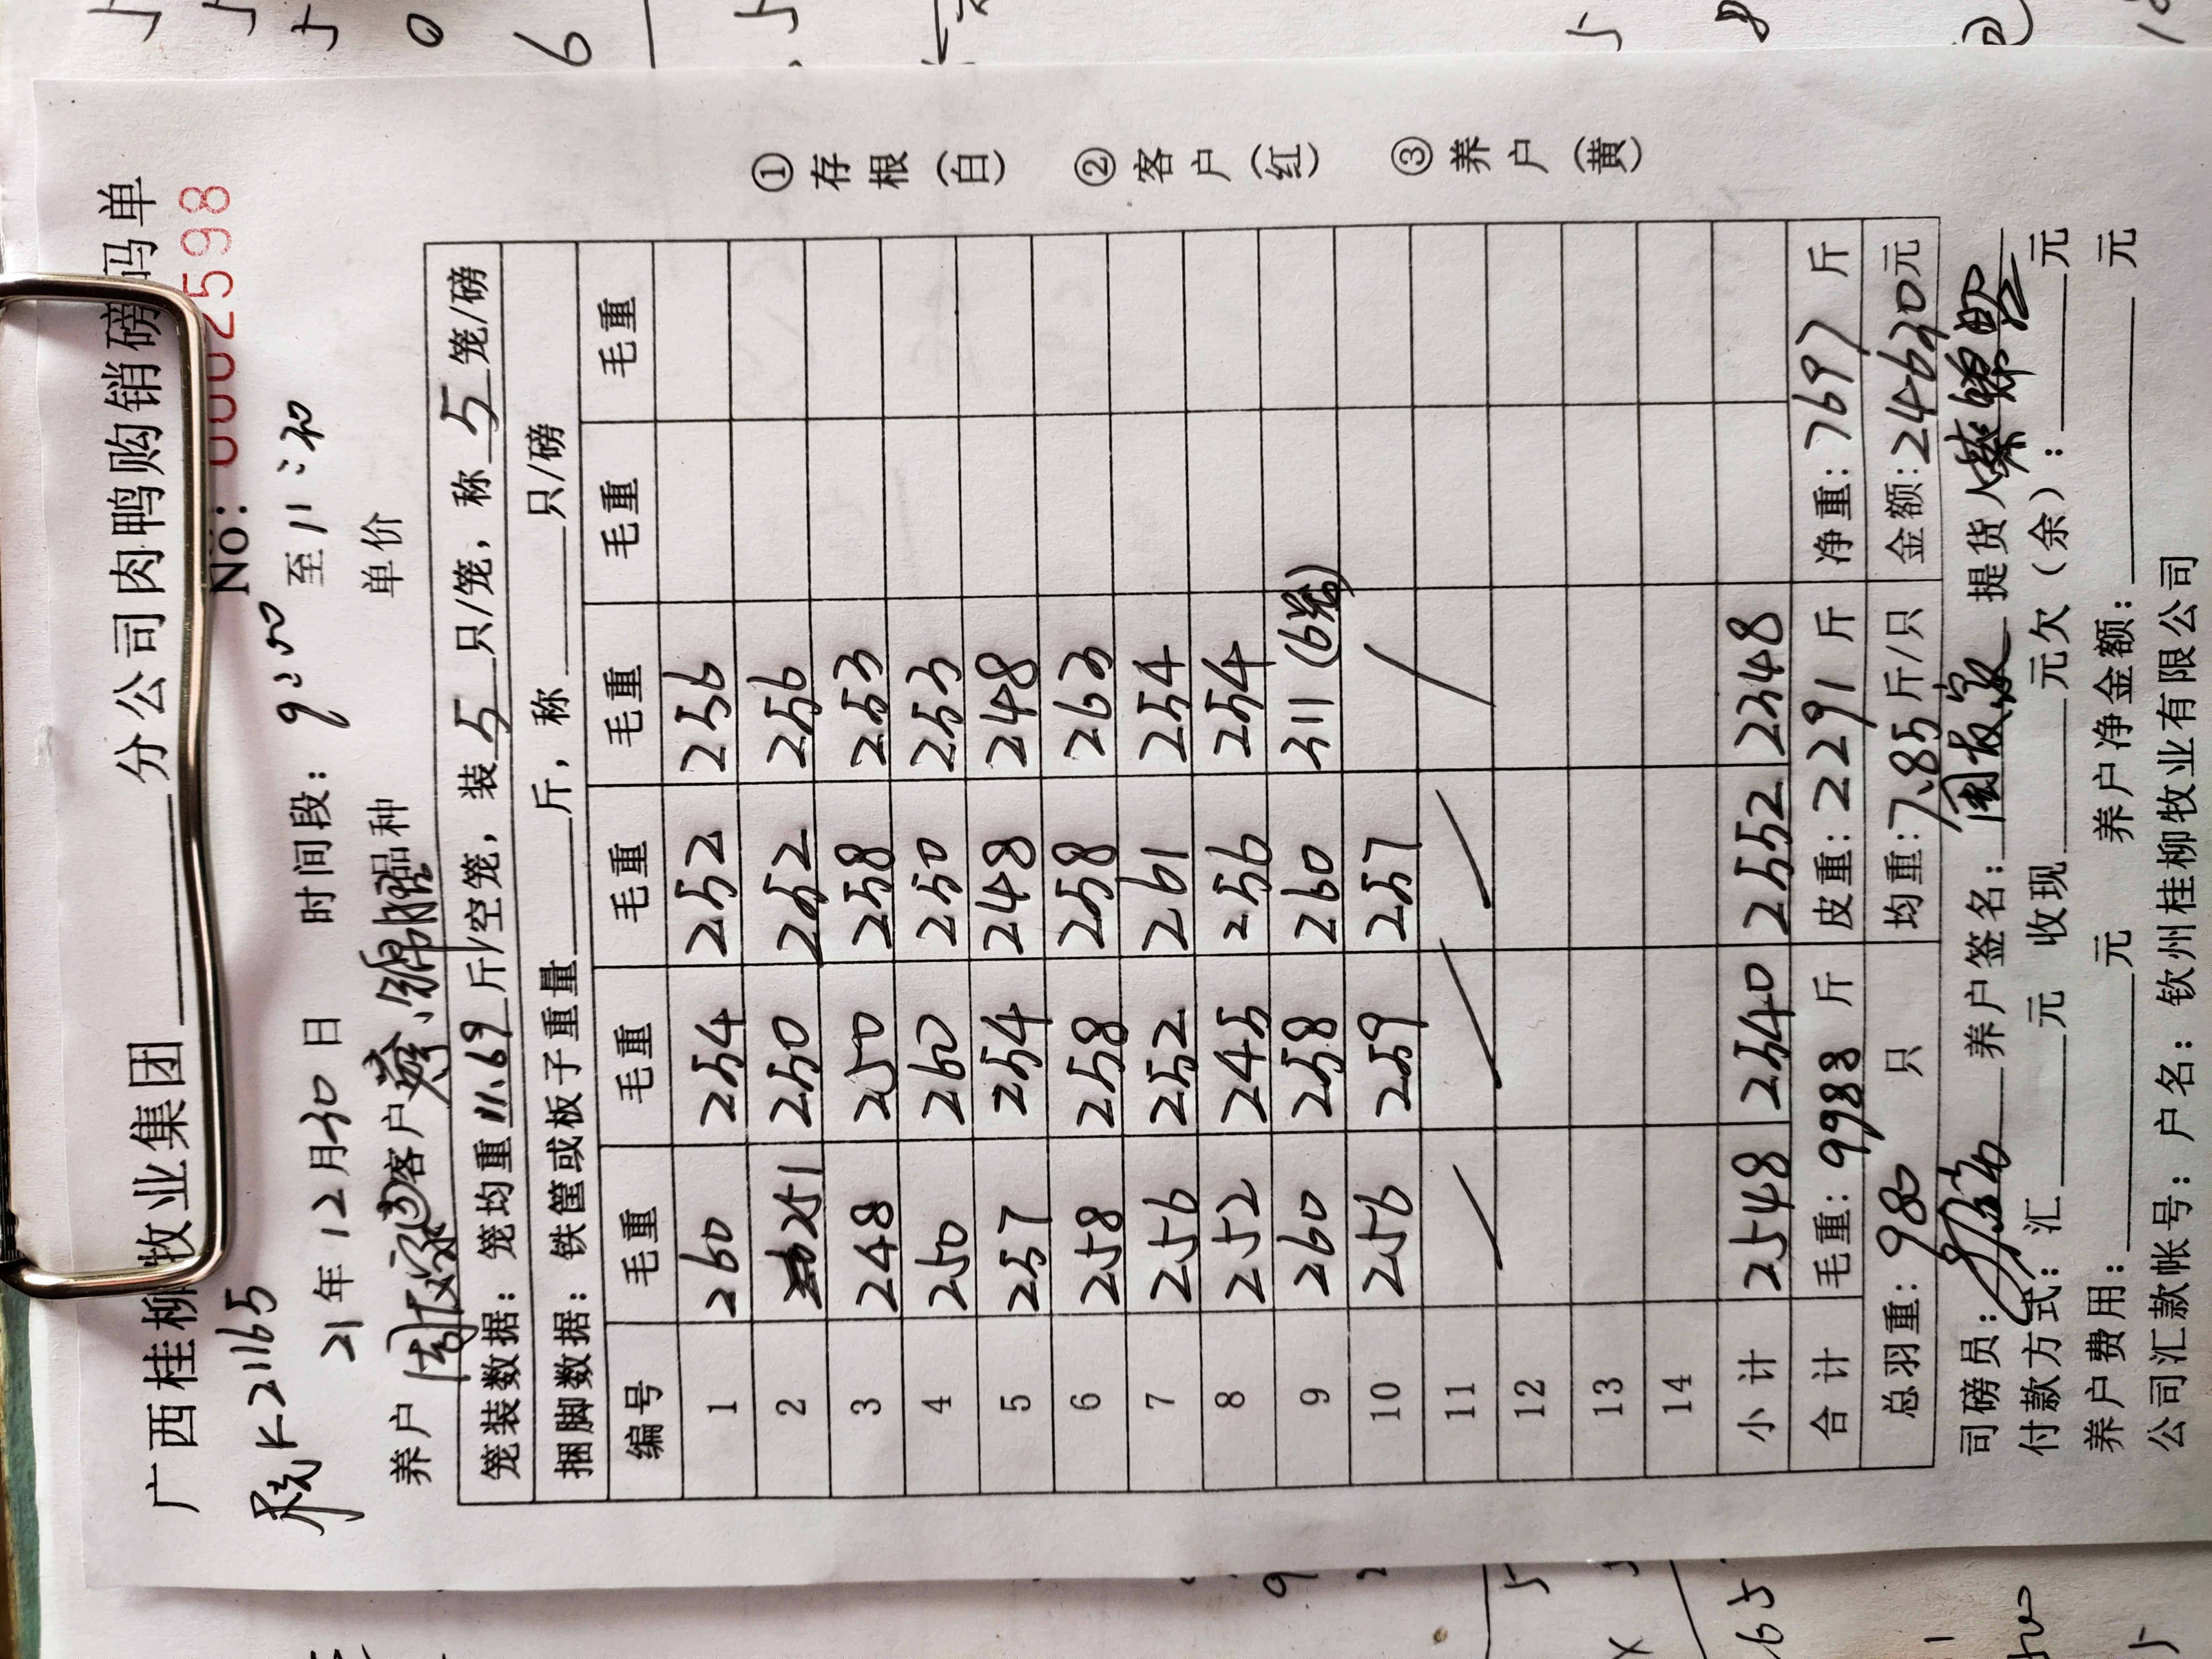 广西桂柳牧业集团 分公司肉鸭购销磅码单
K21165 No: 0002598
21年12月30日 时间段: 9:50 至11:30
养户 客户 品种 单价
笼装数据: 笼均重11.69斤/空笼, 装5只/笼, 称5笼/磅
捆脚数据: 铁筐或板子重量 斤, 称 只/磅
编号 毛重 毛重 毛重 毛重 毛重 毛重
1 260 254 252 256
2 251 250 252 256
3 248 250 258 253
4 250 260 250 253
5 257 254 248 248
6 258 258 258 263
7 256 252 261 254
8 252 245 256 254
9 260 258 260 311 (6笼)
10 256 259 257 /
11
12
13
14
小计 2548 2540 2552 2348
合计 毛重: 9988 斤 皮重: 2291 斤 净重: 7697 斤
总羽重: 980 只 均重: 7.85斤/只 金额: 24630元
司磅员: 养户签名: 提货人
付款方式: 汇 元 收现 元欠(余): 元
养户费用: 元 养户净金额: 元
公司汇款帐号: 户名: 钦州桂柳牧业有限公司
①存根(白) ②客户(红) ③养户(黄)